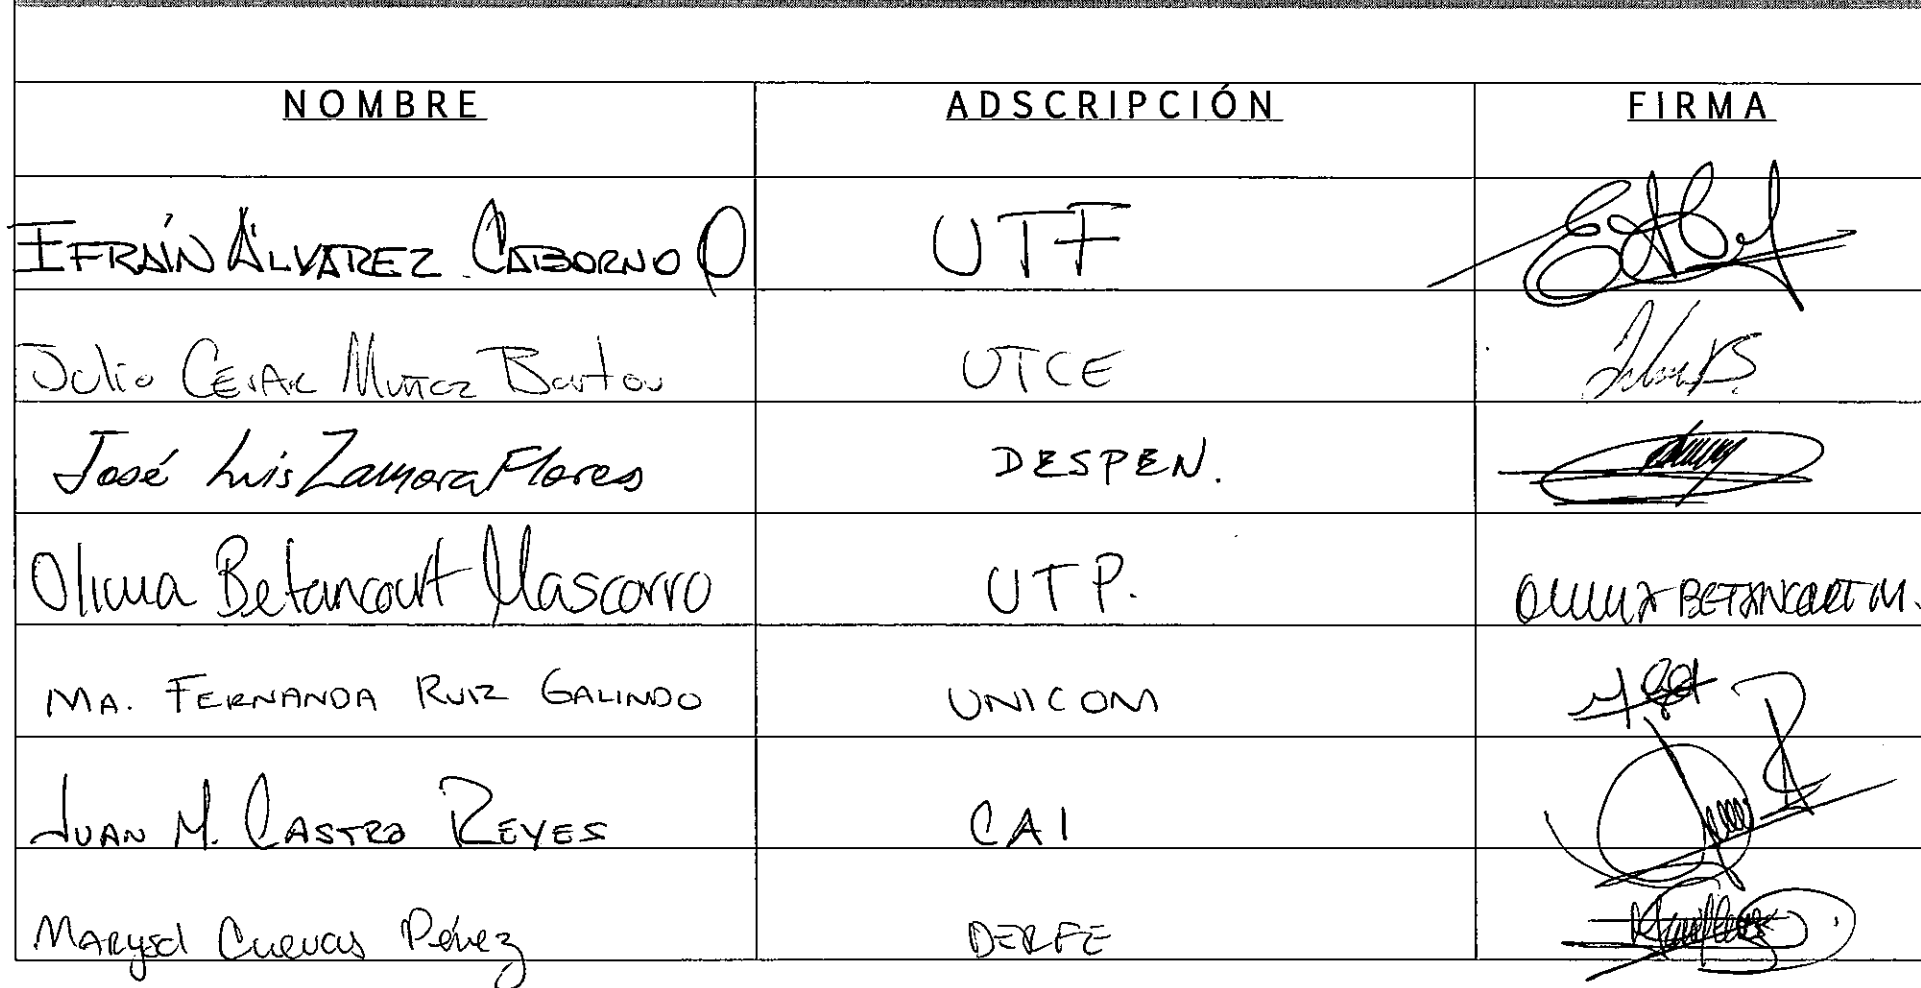 NOMBRE ADSCRIPCIÓN FIRMA
EFRAÍN ÁLVAREZ CABORNO O UTF
Julio CÉSAR Muñoz Bartou UTCE
José Luis Zamora Flores DESPEN.
Olivia Betancourt Mascorro UTP. OLIVIA BETANCOURT M.
MA. FERNANDA RUIZ GALINDO UNICOM
JUAN M. CASTRO REYES CAI
Marysol Cuevas Pérez DERFE